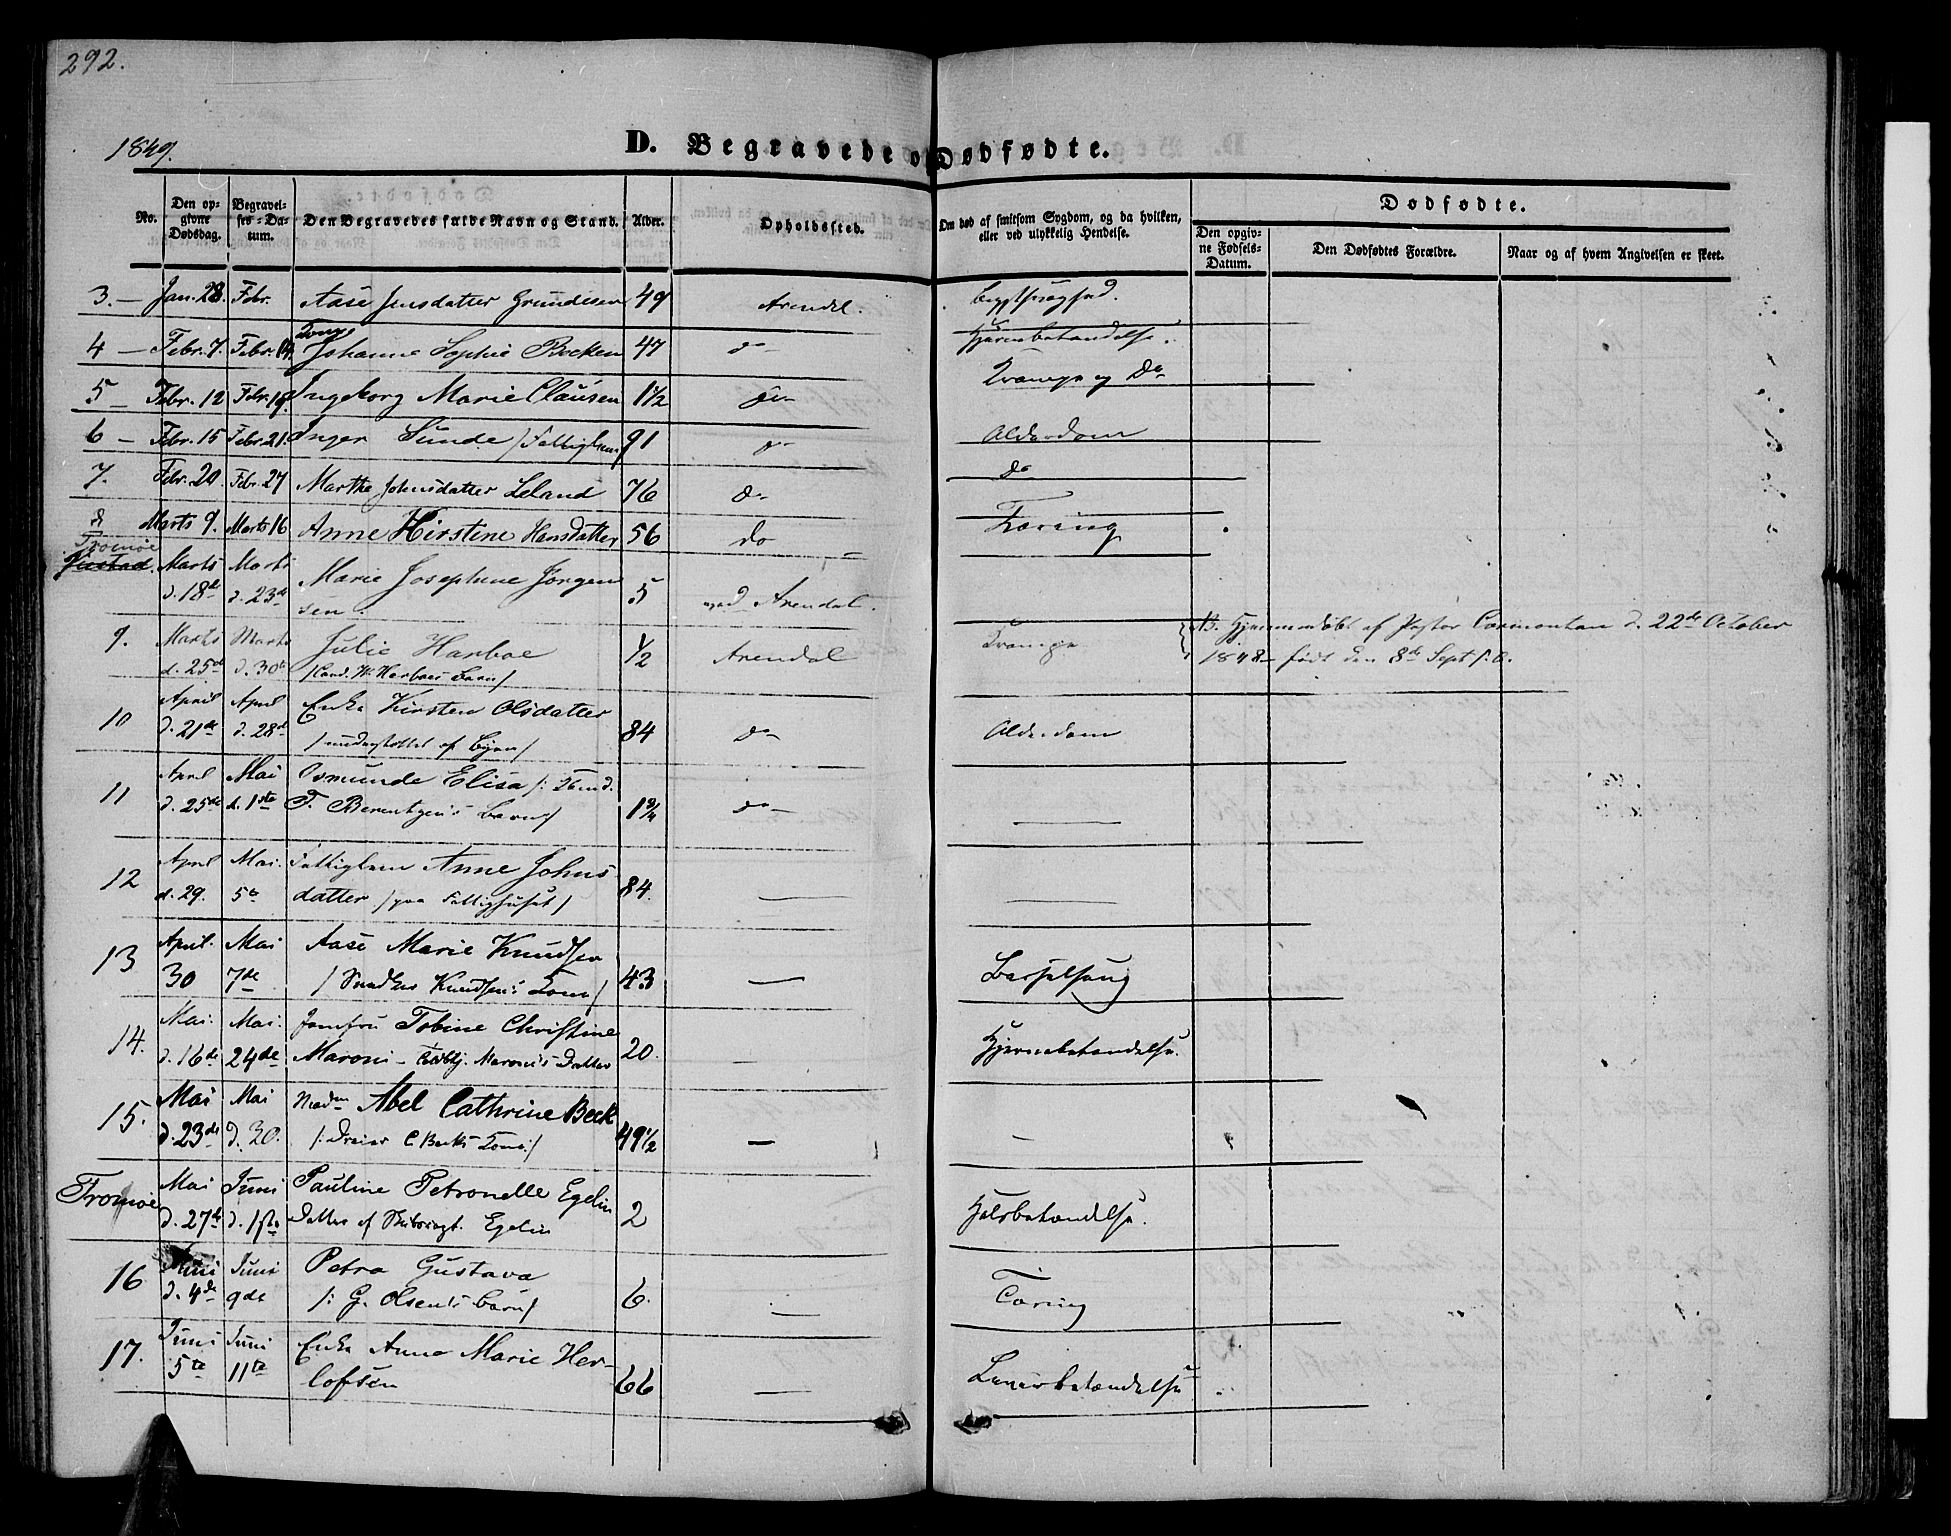 292.
1849.
D. Begravede o Dødfødte.
No. Den opgivne Dødsdag. Begravelses-Datum. Den Begravedes fulde Navn og Stand. Alder. Opholdssted. Om død af smitsom Sygdom, og da hvilken, eller ved ulykkelig Hendelse. Dødfødte.
Den opgivne Fødsels-Datum. Den Dødfødtes Forældre. Naar og af hvem Angivelsen er skeet.
3. — Jan. 28. Febr. Aase Jensdatter Grundesen 49 Arendal.
4 — Febr. 7. Febr. 14. Johanne Sophie Bocken 47 do — Hjernebetændelse.
5 — Febr. 12 Febr. 19. Ingeborg Marie Clausen 1½ do — Krampe og Do
6 — Febr. 15 Febr. 21. Inger Sunde /Fattiglem/ 91 do — Alderdom
7. Febr. 20 Febr. 27 Marthe Johnsdatter Leland 76 do — do
8 Marts 9. Marts 16 Anne Kirstine Hansdatter 56 do Tæring
Tromøe
Marts d. 18de Marts d. 23de Marie Josephine Jørgen
sen. 5 ved Arendal.
9. Marts d. 25de Marts d. 30te Julie Harboe ½ Arendal Krampe NB. Hjemmedøbt af Pastor d. 22de October
/Cand. W. Harboes Barn/ 1848 — født den 8de Sept. s. A.
10 April d. 21de April d. 28de Enke Kirsten Olsdatter 84 do — Alderdom
/understøttet af Byen/
11 April d. 25de Mai d. 1ste Osmunde Elisa /:
T. Berentzen's Barn/ 1¾ do —
12 April d. 29. Mai. 5te Fattiglem Anne Johns-
datter /paa Fattighuset/ 84. —
13 April. 30 Mai 7de Aase Marie Knudsen
/Snedker Knudsen's Kone/ 43 — Barselseng
14. Mai. d. 16de Mai. 24de Jomfru Tobine Christine
Maroni — Maroni's Datter 20. — Hjernebetændelse.
15. Mai d. 23de Mai d. 30. Madm Abel Cathrine Beck
/: Dreier C Becks Kone/ 49½ — —
Tromøe Mai d. 27de Juni d. 1ste Pauline Petronelle Egelin
Datter af Egelin 2 Halsbetændelse.
16 Juni d. 4de Juni 9de Petra Gustava
/: G. Olsen's Barn/ 6. — Tæring
17. Juni 5te Juni 11te Enke Anne Marie Her-
lofsen 66 —